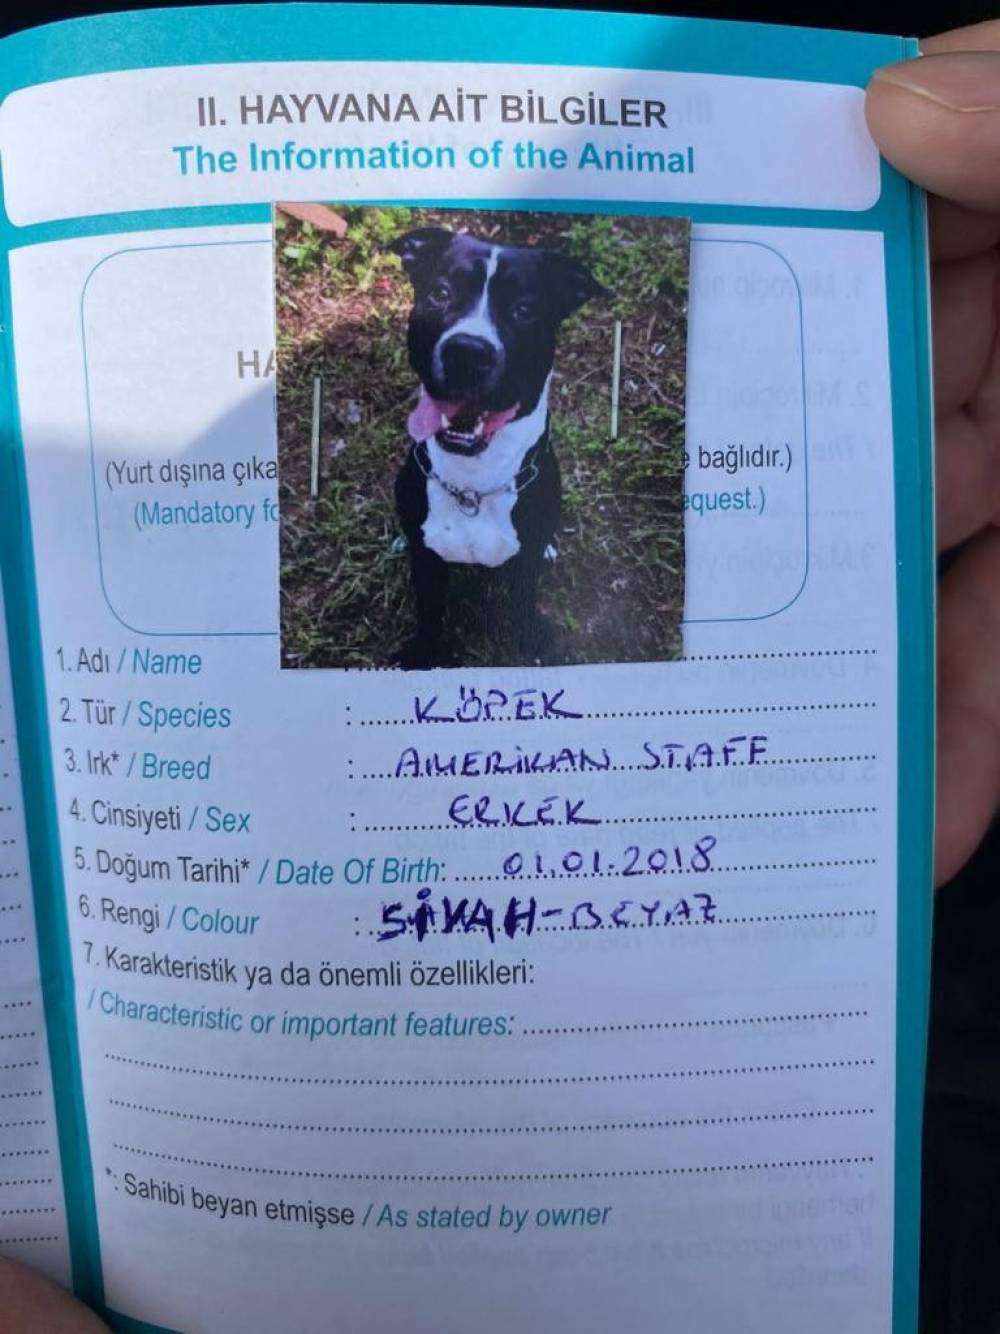 II. HAYVANA AİT BİLGİLER
The Information of the Animal
HA
(Yurt dışına çıka bağlıdır.)
(Mandatory fo equest.)
1. Adı / Name
2. Tür / Species : KÖPEK
3. Irk* / Breed : AMERİKAN STAFF
4. Cinsiyeti / Sex : ERKEK
5. Doğum Tarihi* / Date Of Birth: 01.01.2018
6. Rengi / Colour : SİYAH-BEYAZ
7. Karakteristik ya da önemli özellikleri:
/ Characteristic or important features:
*: Sahibi beyan etmişse / As stated by owner